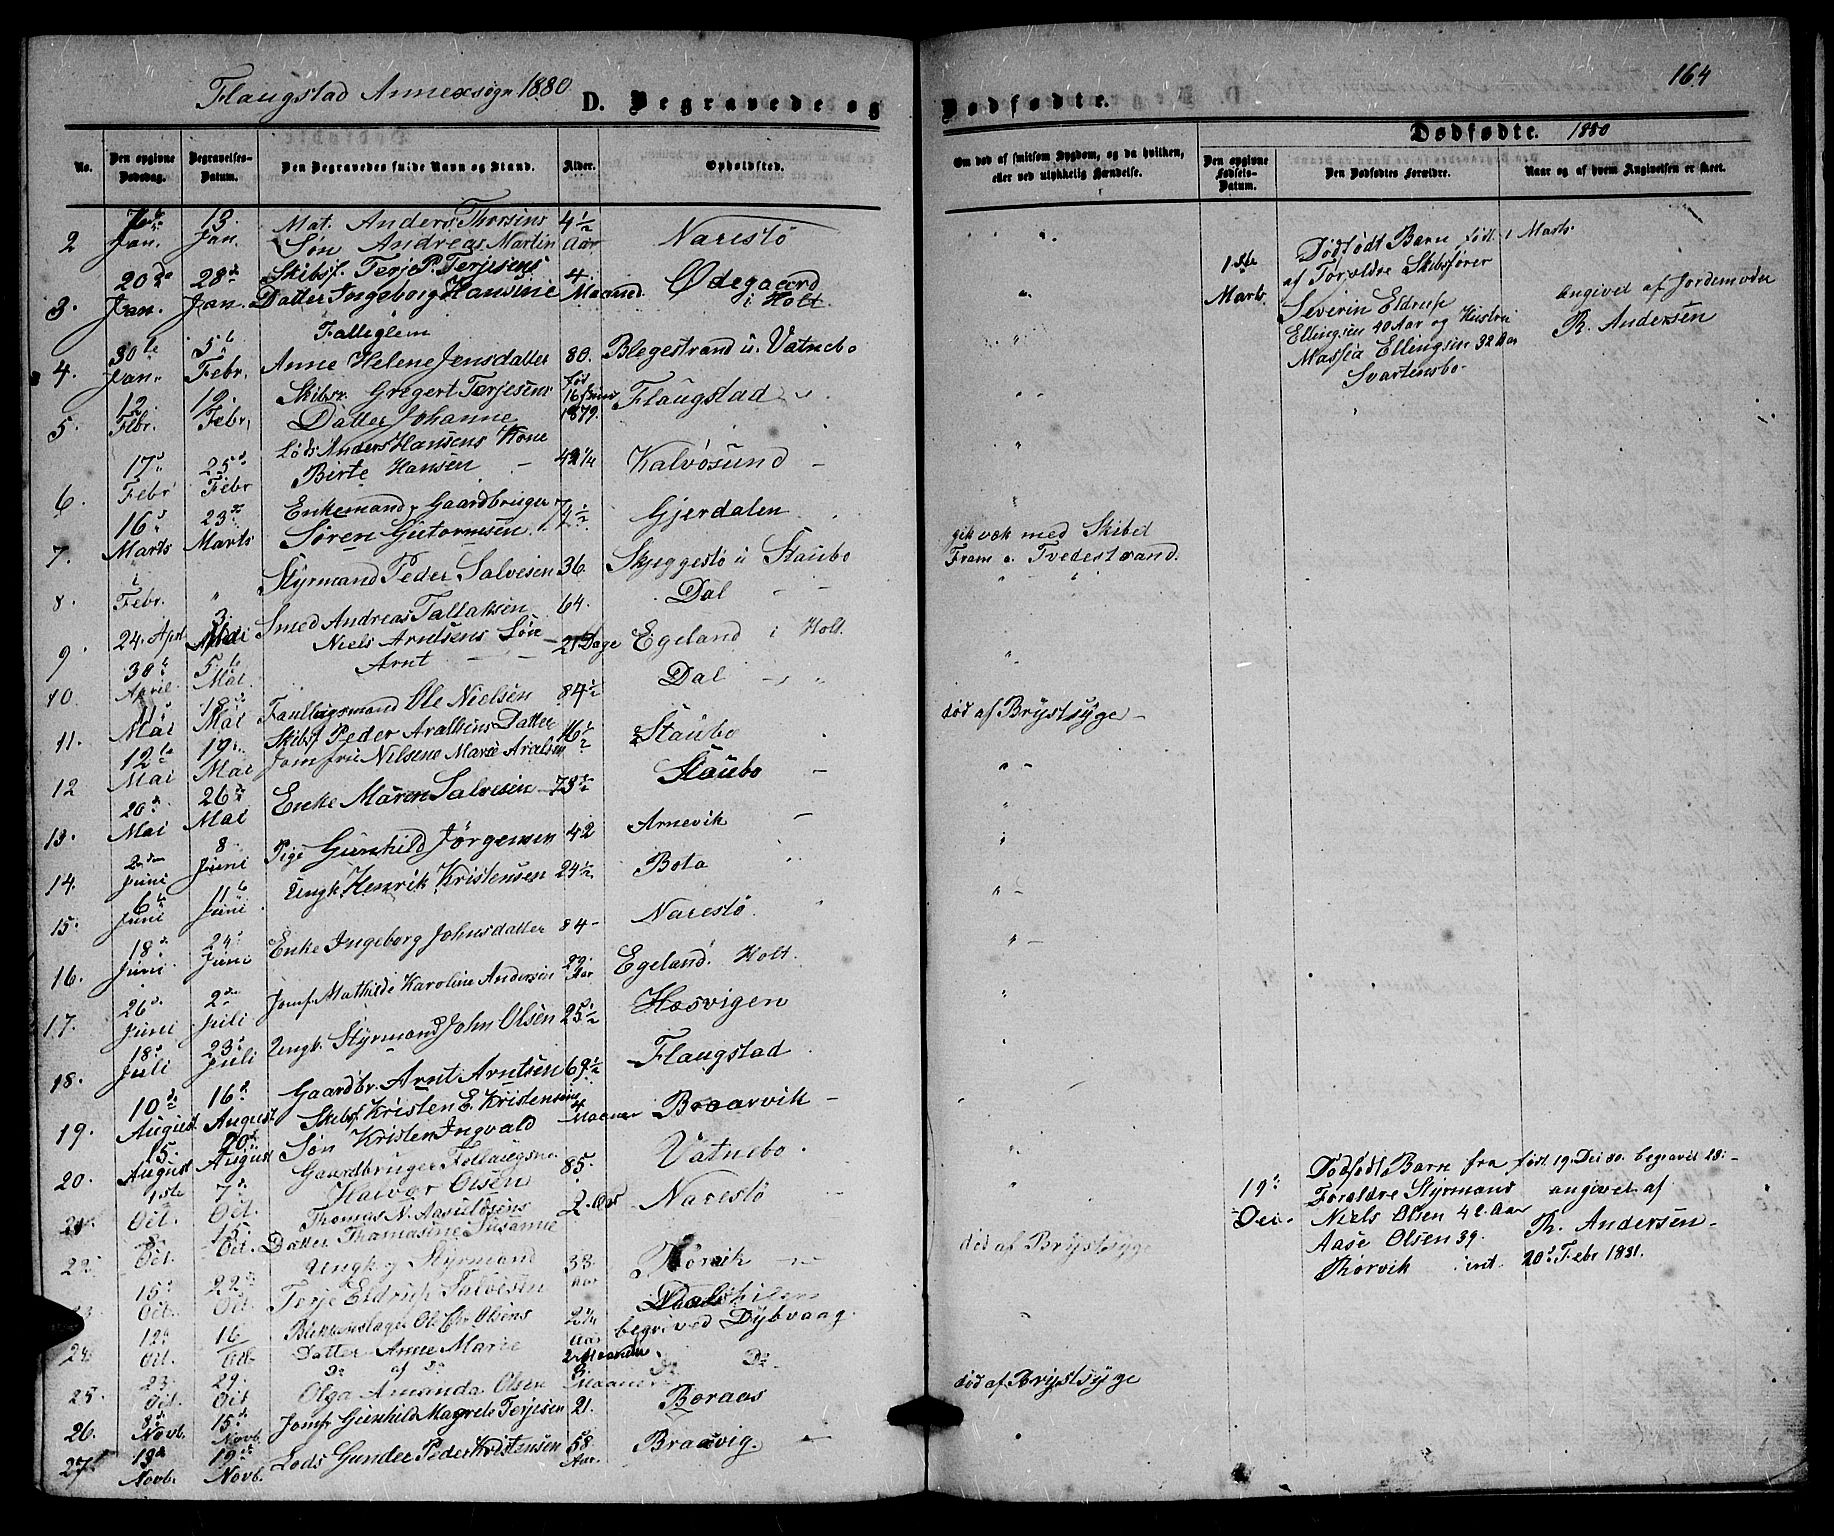 Flaugstad Annexsogn 1880.
D. Begravede og
Dødfødte.
164
Dødfødte. 1880
No.
Den opgivne Dødsdag.
Begravelses-Datum.
Den Begravedes fulde Navn og Stand.
Alder.
Opholdsted.
Om død af smitsom Sygdom, og da hvilken, eller ved ulykkelig Hændelse.
Den opgivne Fødsels-Datum.
Den Dødfødtes Forældre.
Naar og af hvem Angivelsen er skeet.
2 Jan. 13 Jan. Mat. Anders Thorsens Søn Andreas Martin 4½ Aar Narestø
3. 20de Jan. 28de Jan. Skibsf. Terje P. Terjesens Datter Ingeborg Hansine 4 Maaned. Ødegaard i Holt
4. 30te Jan. 5te Febr. Anne Helene Jensdatter 80. Blegestrand u. Vatnebo
5. 12 Fbr. 19. Febr. Skibsr. Gregert Terjesens Datter Johanne fød 16 Juni 1879. Flaugstad
6. 17d Febr 25d Febr Lods Anders Hansens Kone Birte Hansen 49¼ Kalvøsund
7. 16d Marts 23de Marts Enkemand, Gaardbruger Søren Gutormsen 74½ Gjerdalen
8. i Febr. " Styrmand Peder Salvesen 36. Skjeggestø u Staubo
gik væk med Skibet
Fram a. Tvedestrand.
9. 24. April 3. Mai Smed Andreas Tallaksen 64. Dal
10. 30te April 5te Mai Niels Arntsens Søn Arnt 21 Dage Egeland i Holt.
11. 11d Mai 18de Mai Ole Nielsen 84½ Dal
12 12te Mai 19. Mai Skibsf Peder Aralsens Datter Jomfru Nilsene Marie Aralsen 16½ Staubo
død af Brystsyge
13. 20de Mai 26de Mai Enke Maren Salvesen 73½ Staubo
14. 2den Juni 8 Juni Pige Gunhild Jørgensen 42 Arnevik
15. 6te Juni 11te Juni Ungk. Henrik Kristensen 24½ Bota
16. 18d Juni 24d Juni Enke Ingeborg Johnsdatter 84 Narestø
17. 26d Juni 2den Juli Jomf. Mathilde Karoline Andersen 22 Aar Egeland. Holt.
18. 18d Juli 23d Juli Ungk. Styrmand John Olsen 25½ Hasvigen
19. 10de August 16d August Gaardbr. Arnt Arntsen 69½ Flaugstad
20. 15. August 20d August Skibsf Kristen E. Kristensens Søn Kristen Ingvald 4 Maaner Braarvik
21. 1ste Oct. 7de Oct. Gaardbruger Halvor Olsen 85. Vatnebo
22. 8de Oct. 15 Oct. Thomas N. Aasuldsens Datter Thomasine Susanne 2 Aar Narestø
23. 15d Oct. 22de Oct. Ungk og Styrmand Terje Eldrup Salvesen 33 Aar Thorvik
død af Brystsyge
24. 12te Oct. 16 Oct. Ole Chr. Olsens Datter Anne Marie Aar begrived Dybvaag
25. 23 Oct. 29 Oct Do af do Olga Amanda Olsen Maaner do Do
26. 8de Novb. 15de Novb. Jomfr Gunhild Magrete Terjesen 21. Boraas
død af Brystsyge
27. 13de Novb. 19de Novb. Lods Gunder Peder Kristensen 58 Aar. Braavig.
1ste Marts
Dødfødt Barn født 1 Marts.
af Foreldre Skibsfører
Severin Eldrup
Ellingsen 40 Aar og Hustru
Massia Ellingsen 32 Aar
Svartensbo.
angivet af Jordemoder
R. Andersen
19d Dec.
Dødfødt Barn fra født 19. Dec 80. begravet 28
Foreldre Styrmand angivet af
Niels Olsen 42 Aar R. Andersen
Aase Olsen 39.
Thorvik ind. 20d Febr 1881.